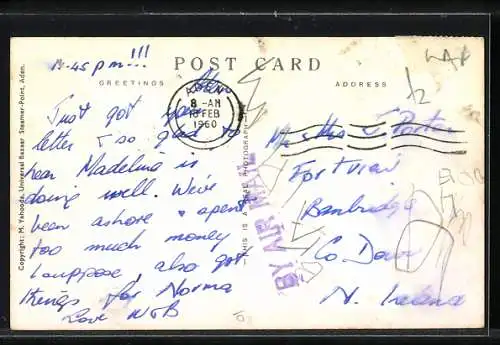 POST CARD
GREETINGS
ADDRESS
11.45 pm!!!
Aden
Just got your
letter & so glad to
hear Madelina is
doing well. We've
been ashore & spent
too much money
I suppose, also got
things for Norma
Love W & B
ADEN
8 - AM
FEB
1960
Mr & Mrs Porter
Fortview
Banbridge
Co Down
N. Ireland
BY AIR MAIL
THIS IS A REAL PHOTOGRAPH
Copyright: M. Yahooda, Universal Bazaar Steamer-Point, Aden.
1/2